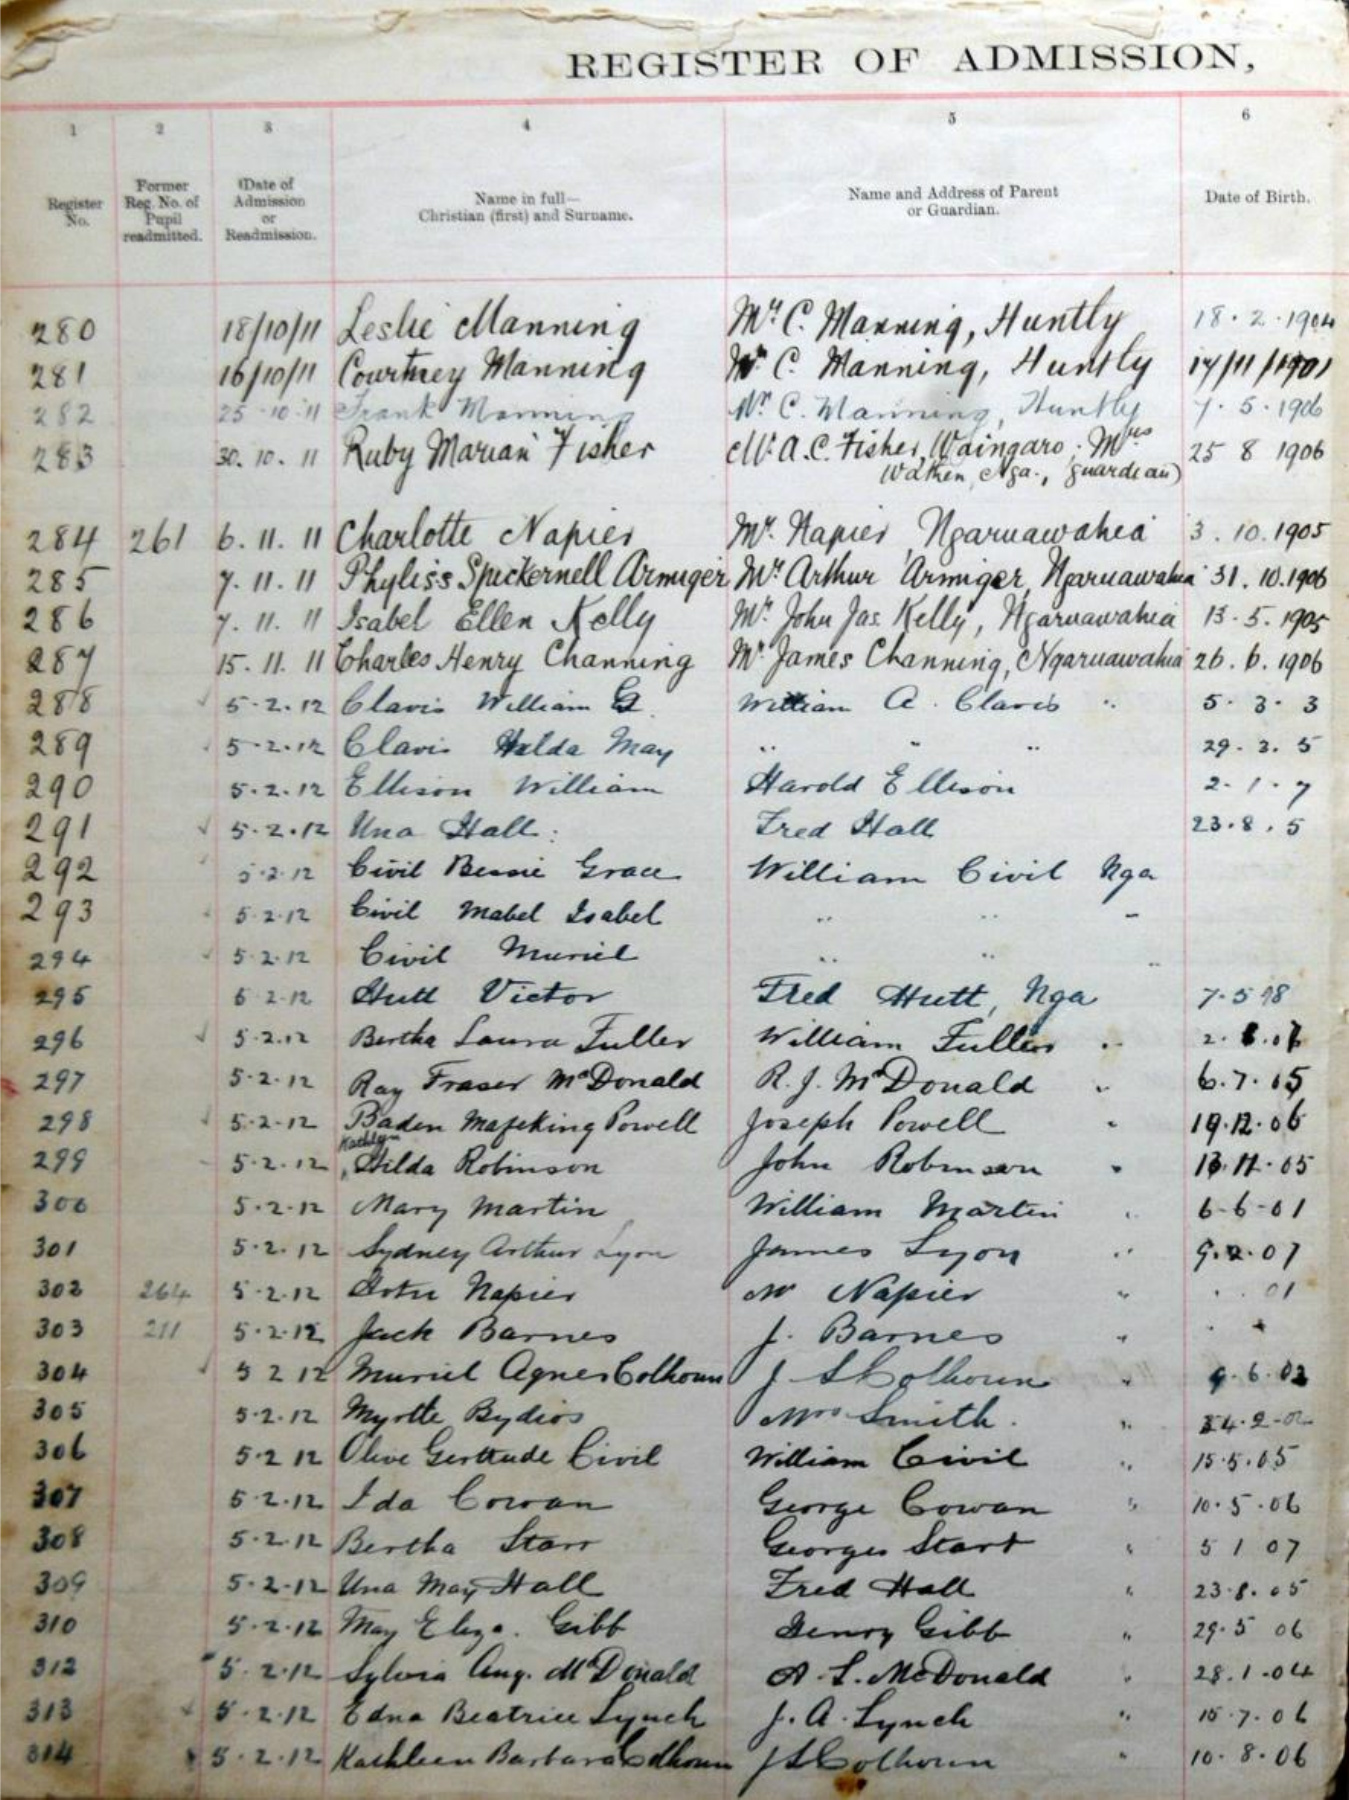 REGISTER OF ADMISSION,
1 2 3 4 5 6
Register No. Former Reg. No. of Pupil readmitted. Date of Admission or Readmission. Name in full— Christian (first) and Surname. Name and Address of Parent or Guardian. Date of Birth.
280 18/10/11 Leslie Manning Mr C. Manning, Huntly 18.2.1904
281 16/10/11 Courtney Manning Mr C. Manning, Huntly 14/11/1901
282 25.10.11 Frank Manning Mr C. Manning, Huntly 7.5.1906
283 30.10.11 Ruby Marian Fisher Mr A.C. Fisher, Waingaro. Mrs 25 8 1906
Wathen, Nga., guardian)
284 261 6.11.11 Charlotte Napier Mr. Napier, Ngaruawahia 3.10.1905
285 7.11.11 Phyliss Spickernell Armiger Mr Arthur Armiger, Ngaruawahia 31.10.1906
286 7.11.11 Isabel Ellen Kelly Mr. John Jas. Kelly, Ngaruawahia 13.5.1905
287 15.11.11 Charles Henry Channing Mr. James Channing, Ngaruawahia 26.6.1906
288 5.2.12 Clavis William G. William A. Clavis " 5.3.3
289 5-2.12 Clavis Hilda May " " " 29.3.5
290 5.2.12 Ellison William Harold Ellison 2.1.7
291 5.2.12 Una Hall. Fred Hall 23.8.5
292 5.2.12 Civil Bessie Grace William Civil Nga
293 5.2.12 Civil Mabel Isabel " " "
294 5.2.12 Civil Muriel " " "
295 5 2.12 Hutt Victor Fred Hutt, Nga 7.5 98
296 5.2.12 Bertha Laura Fuller William Fuller " 2.
297 5-2.12 Ray Fraser McDonald R. J. McDonald " 6.7.05
298 5-2-12 Baden Mafeking Powell Joseph Powell " 19.12.06
Kathlyn
299 5.2.12 Hilda Robinson John Robinson " 13.11.05
300 5.2.12 Mary Martin William Martin " 6-6-01
301 5.2.12 Sydney Arthur Lyon James Lyon " 9.2.07
302 264 5.2.12 Napier Mr Napier " 01
303 211 5.2.12 Jack Barnes J. Barnes "
304 5 2 12 Muriel Agnes Colhoun J S Colhoun " 9.6.02
305 5.2.12 Myrtle Bydios Mrs Smith. "
306 5.2 12 Olive Gertrude Civil William Civil " 15.5.05
307 5.2.12 Ida Cowan George Cowan " 10.5.06
308 5.2.12 Bertha Starr Georges Start " 5 1 07
309 5.2.12 Una May Hall Fred Hall " 23.8.05
310 5.2.12 May Eliza. Gibb Henry Gibb " 29.5 06
312 5.2.12 Sylvia Aug. McDonald A. L. McDonald " 28.1.04
313 5.2.12 Edna Beatrice Lynch J. A. Lynch " 15.7.06
314 5.2.12 Kathleen Barbara Colhoun J S Colhoun " 10.8.06